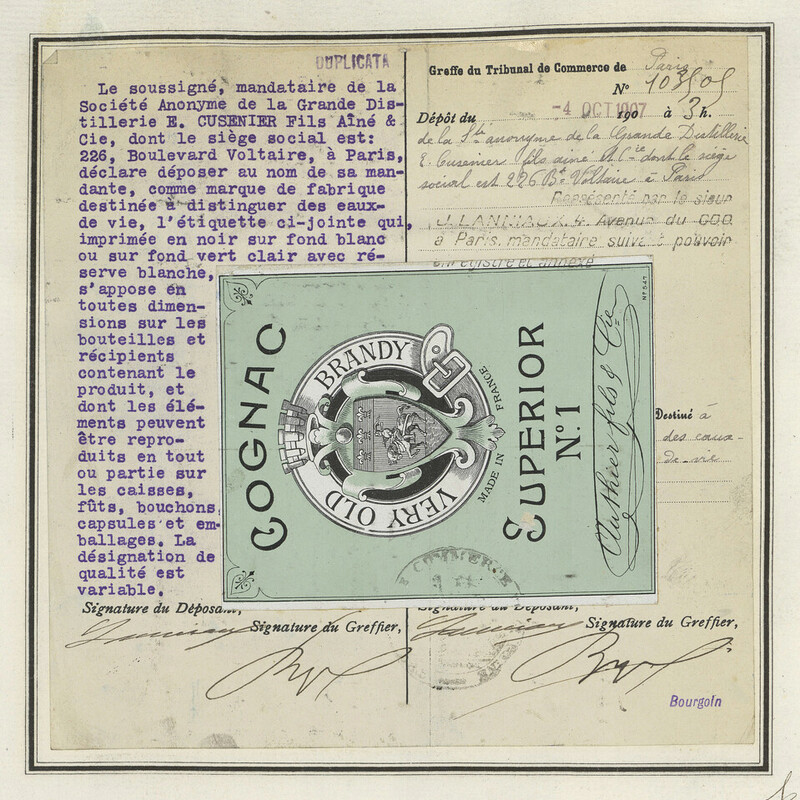 DUPLICATA
Le soussigné, mandataire de la
Société Anonyme de la Grande Dis-
tillerie E. CUSENIER Fils Aîné &
Cie, dont le siège social est:
226, Boulevard Voltaire, à Paris,
déclare déposer au nom de sa man-
dante, comme marque de fabrique
destinée à distinguer des eaux-
de vie, l'étiquette ci-jointe qui,
imprimée en noir sur fond blanc
ou sur fond vert clair avec ré-
serve blanche,
s'appose en
toutes dimen-
sions sur les
bouteilles et
récipients
contenant le
produit, et
dont les élé-
ments peuvent
être repro-
duits en tout
ou partie sur
les caisses,
fûts, bouchons,
capsules et em-
ballages. La
désignation de
qualité est
variable.
Signature du Déposant,
Signature du Greffier,
Greffe du Tribunal de Commerce de Paris
N°
Dépôt du -4 OCT 1907 190 à 3 h.
de la Sté anonyme de la Grande Distillerie
E. Cusenier fils ainé & Cie dont le siège
social est 226 Bd Voltaire à Paris
Représenté par le sieur
J. LANNIAUX, 4, Avenue du COQ
à Paris, mandataire suivant pouvoir
enregistré et annexé
Destiné à
des eaux-
de-vie
COGNAC
BRANDY
VERY OLD
MADE IN FRANCE
SUPERIOR
N° 1
Authier fils & Cie
N° 547
COMMERCE
Signature du Déposant,
Signature du Greffier,
Bourgoin